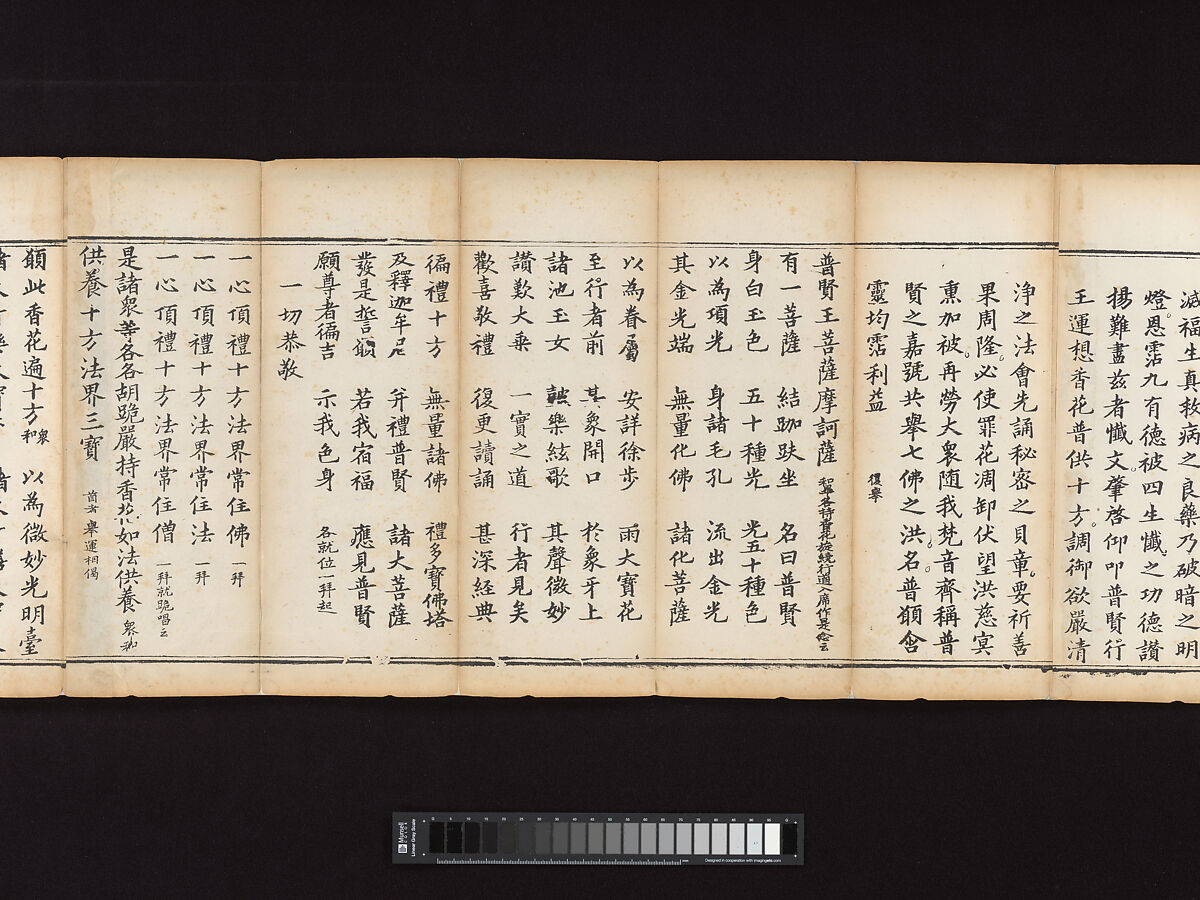 滅福生真救病之良藥乃破暗之明
燈恩霑九有德被四生懺之功德讚
揚難盡茲者懺文肇啓仰叩普賢行
王運想香花普供十方調御欲嚴清
淨之法會先誦秘密之貝章要祈善
果周隆必使罪花凋卸伏望洪慈冥
熏加被再勞大衆随我梵音齊稱普
賢之嘉號共舉七佛之洪名普願含
靈均霑利益 復舉
普賢王菩薩摩訶薩 和畢各持寶花旋繞行道入席作是念云
有一菩薩 結跏趺坐 名曰普賢
身白玉色 五十種光 光五十種色
以為項光 身諸毛孔 流出金光
其金光端 無量化佛 諸化菩薩
以為眷屬 安詳徐步 雨大寶花
至行者前 其象開口 於象牙上
諸池玉女 鼓樂絃歌 其聲微妙
讚歎大乗 一實之道 行者見矣
歡喜敬禮 復更讀誦 甚深經典
徧禮十方 無量諸佛 禮多寶佛塔
及釋迦牟尼 并禮普賢 諸大菩薩
發是誓願 若我宿福 應見普賢
願尊者徧吉 示我色身 各就位一拜起
一切恭敬
一心頂禮十方法界常住佛 一拜
一心頂禮十方法界常住法 一拜
一心頂禮十方法界常住僧 一拜就跪唱云
是諸衆等各各胡跪嚴持香花如法供養 衆和
供養十方法界三寶 首者舉運想偈
願此香花遍十方 衆和 以為微妙光明臺